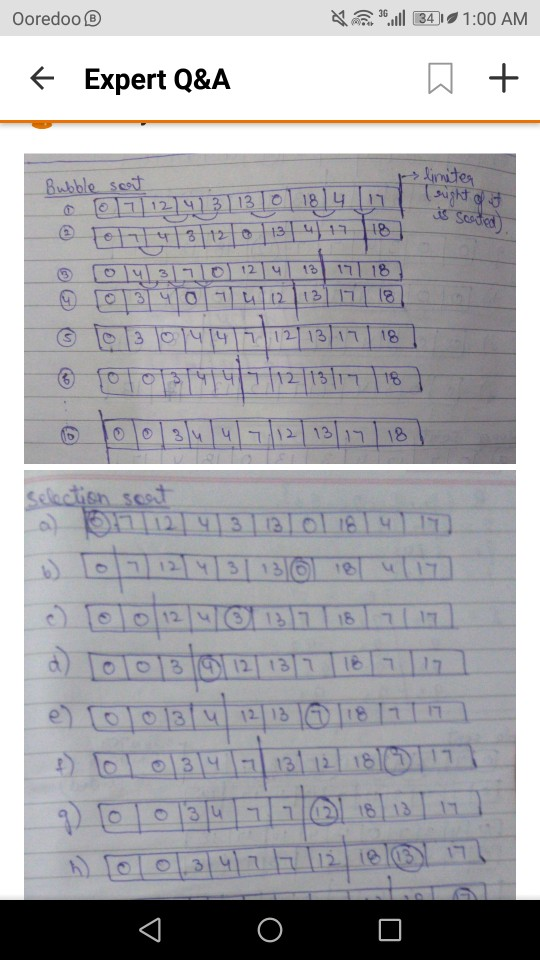 Ooredoo B 3G 34 1:00 AM
Expert Q&A
Bubble sort
→ limiter
(right of it
is sorted).
① 0 7 12 4 3 13 0 18 4 17
② 0 7 4 3 12 0 13 4 17 18
③ 0 4 3 7 0 12 4 13 17 18
4 0 3 4 0 7 4 12 13 17 18
⑤ 0 3 0 4 4 7 12 13 17 18
⑥ 0 0 3 4 4 7 12 13 17 18
⑩ 0 0 3 4 4 7 12 13 17 18
Selection sort
a) 0 7 12 4 3 13 0 18 4 17
b) 0 7 12 4 3 13 0 18 4 17
c) 0 0 12 4 3 13 7 18 7 17
d) 0 0 3 4 12 13 7 18 7 17
e) 0 0 3 4 12 13 7 18 7 17
f) 0 0 3 4 7 13 12 18 7 17
g) 0 0 3 4 7 7 12 18 13 17
h) 0 0 3 4 7 7 12 18 13 17